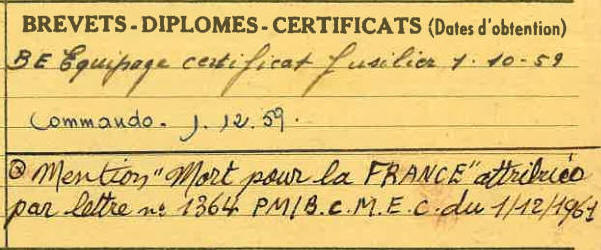 BREVETS - DIPLOMES - CERTIFICATS (Dates d'obtention)
BE Equipage certificat fusilier 1.10-59
Commando. 1.12.59.
Mention "Mort pour la FRANCE" attribuée
par lettre n° 1364 PM/B.C.M.E.C. du 1/12/1961